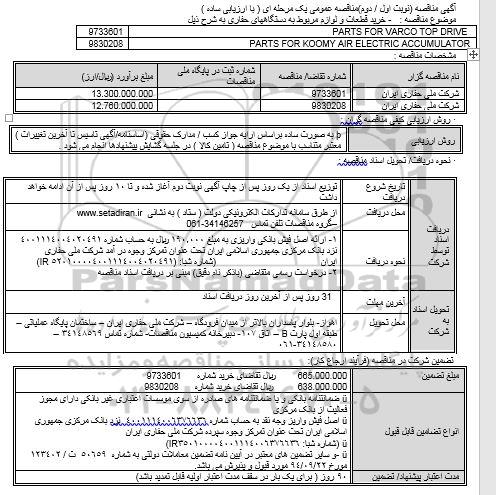 آگهی مناقصه (نوبت اول / دوم)مناقصه عمومی یک مرحله ای ( با ارزیابی ساده )
موضوع مناقصه : - خرید قطعات و لوازم مربوط به دستگاههای حفاری به شرح ذیل
9733601 PARTS FOR VARCO TOP DRIVE
9830208 PARTS FOR KOOMY AIR ELECTRIC ACCUMULATOR
مشخصات مناقصه :
نام مناقصه گزار شماره تقاضا/ مناقصه شماره ثبت در پایگاه ملی مناقصات مبلغ برآورد (ریال/ارز)
شرکت ملی حفاری ایران 9733601 13.300.000.000
شرکت ملی حفاری ایران 9830208 12.760.000.000
روش ارزیابی کیفی مناقصه گران :
روش ارزیابی þ به صورت ساده براساس ارایه جواز کسب / مدارک حقوقی (اساسنامه/آگهی تاسیس تا آخرین تغییرات ) معتبر متناسب با موضوع مناقصه ( تامین کالا ) در جلسه گشایش پیشنهادها انجام می شود .
- نحوه دریافت/ تحویل اسناد مناقصه :
دریافت اسناد توسط شرکت
تاریخ شروع دریافت توزیع اسناد از یک روز پس از چاپ آگهی نوبت دوم آغاز شده و تا ۱۰ روز پس از آن ادامه خواهد داشت
محل دریافت از طرق سامانه تدارکات الکترونیکی دولت ( ستاد ) به نشانی www.setadiran.ir
–گروه مناقصات تلفن تماس 34146257-061
نحوه دریافت ۱- ارائه اصل فیش بانکی واریزی به مبلغ ۱۹۰,۰۰۰ ریال به حساب شماره ۴۰۰۱۱۱۴۰۰۴۰۲۰۴۹۱
نزد بانک مرکزی جمهوری اسلامی ایران تحت عنوان تمرکز وجوه در آمد شرکت ملی حفاری
ایران (شماره شبا:
۲- درخواست رسمی متقاضی (بانکر نام دقیق) مبنی بر دریافت اسناد مناقصه
تحویل اسناد به شرکت
آخرین مهلت 31 روز پس از آخرین روز دریافت اسناد
محل تحویل اهواز- بلوار پاسداران بالاتر از میدان فرودگاه – شرکت ملی حفاری ایران – ساختمان پایگاه عملیاتی –
طبقه اول پارت B – اتاق ۱۰۷- دبیرخانه کمیسیون مناقصات- شماره تماس ۳۴۱۴۸۵۶۹ –
۰۶۱-۳۴۱۴۸۵۸۰
تضمین شرکت در مناقصه (فرآیند ارجاع کار):
مبلغ تضمین 665.000.000 ریال تقاضای خرید شماره 9733601
638.000.000 ریال تقاضای خرید شماره 9830208
انواع تضامین قابل قبول ü ضمانتنامه بانکی و یا ضمانتنامه های صادره از سوی موسسات اعتباری غیر بانکی دارای مجوز
فعالیت از بانک مرکزی
ü اصل فیش واریز وجه نقد به حساب شماره نزد بانک مرکزی جمهوری
اسلامی ایران تحت عنوان تمرکز وجوه سپرده شرکت ملی حفاری ایران
ü شماره شبا:
ü -و سایر تضمین های معتبر در آیین نامه تضمین معاملات دولتی به شماره ۱۲۳۴۰۲ / ت ۵۰۶۵۹ ه
مورخ ۹۴/۰۹/۲۲ مورد قبول و پذیرش می باشد.
مدت اعتبار پیشنهاد/ تضمین ۹۰ روز ( برای یک بار در سقف مدت اعتبار اولیه قابل تمدید باشد)
ParsNamadData